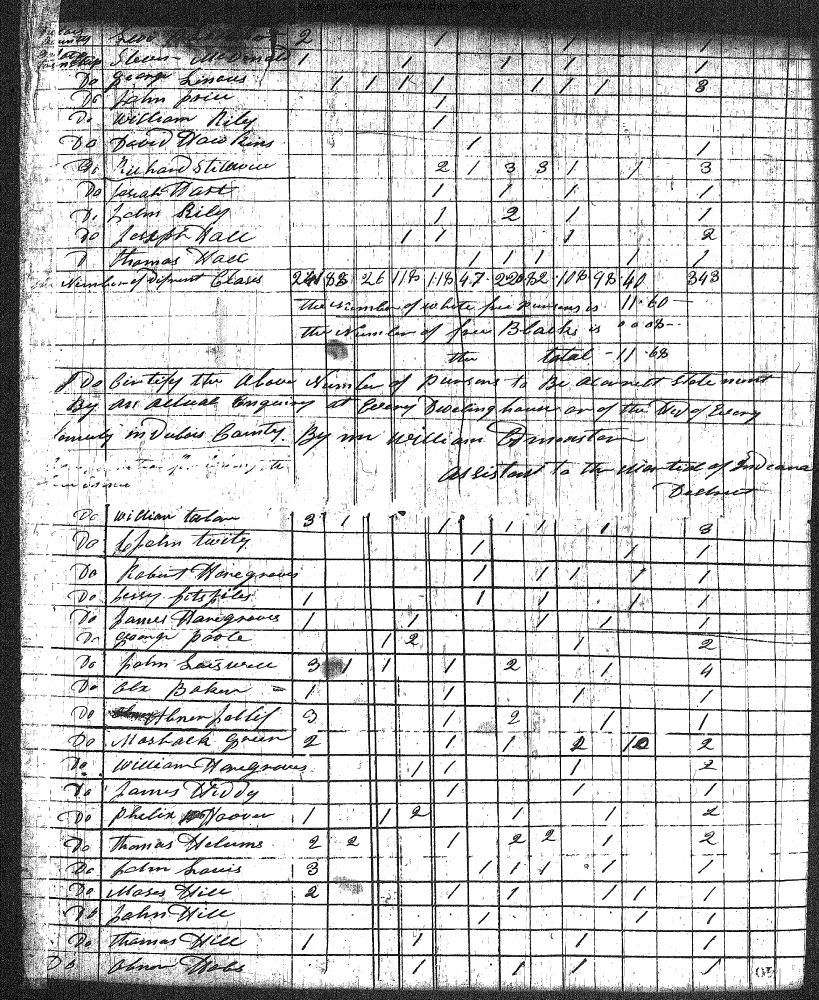 AllCensus - USGenWeb Archives - Rootsweb
2 1 1 1
Steven McDonald 1 1 1 1 1
Do George Linous 1 1 1 1 1 1 1 8
Do John price 1
Do William Rily 1
Do David Hawkins 1 1
Do Richard Stillwell 2 1 3 3 1 1 3
Do Josiah Hart 1 1 1 1
Do John Rily 1 2 1 1
Do Joseph Hall 1 1 1 2
D Thomas Hall 1 1 1 1 1
Number of Different Classes 26 118 118 47 108 98 40 343
the Number of white free persons is 11.60
the Number of free Blacks is 0008
the total - 11.68
I Do Certify the Above Number of persons to Be Acorrect Statement
By an Actual Enquiry at Every Dweling house or of the Hed of Every
family in Dubois County. By me William Edmonston
Assistant to the Martial of Indeana
District
Do William 3 1 1 1 1 1 3
Do John twity 1 1 1
Do Robert Haregroves 1 1 1 1 1
Do Jessy 1 1 1 1 1
Do James Haregroves 1 1 1 1 1
Do George poole 1 2 1 2
Do John 3 1 1 1 2 1 4
Do Alx Baker = 1 1 1 1
Do Abner 3 1 2 1 1
Do Green 2 1 1 2 2
Do William Haregroves 1 1 1 2
Do James Widdy 1 1 1 1
Do Phelix Hoover 1 1 2 1 1 2
Do Thomas Helums 2 2 1 2 2 1 2
Do John Lewis 3 1 1 1 1 1
Do Moses Hill 2 1 1 1 1 1
Do John Hill 1 1 1
Do Thomas Hill 1 1 1 1
Do Abner Hobs 1 1 1 1